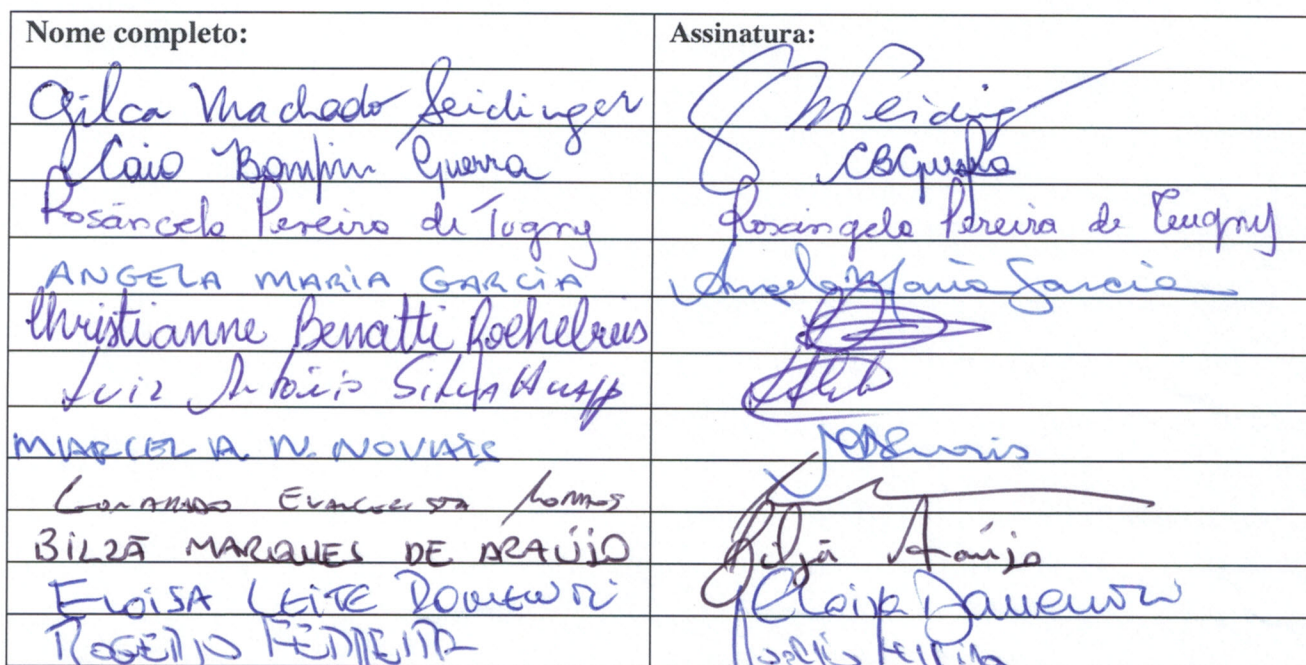 Nome completo: Assinatura:
Gilca Machado Seidinger
Caio Bomfim Guerra CBGuerra
Rosângela Pereira de Tugny Rosângela Pereira de Tugny
ANGELA MARIA GARCIA Angela Maria Garcia
Christianne Benatti Rochebois
Luiz Antônio Silva
MARCELA N. NOVAIS
EVANGELISTA
BILZÃ MARQUES DE ARAÚJO Bilzã Araújo
ELOISA LEITE DOMENICI Eloisa Domenici
ROGÉRIO FERREIRA Rogério Ferreira